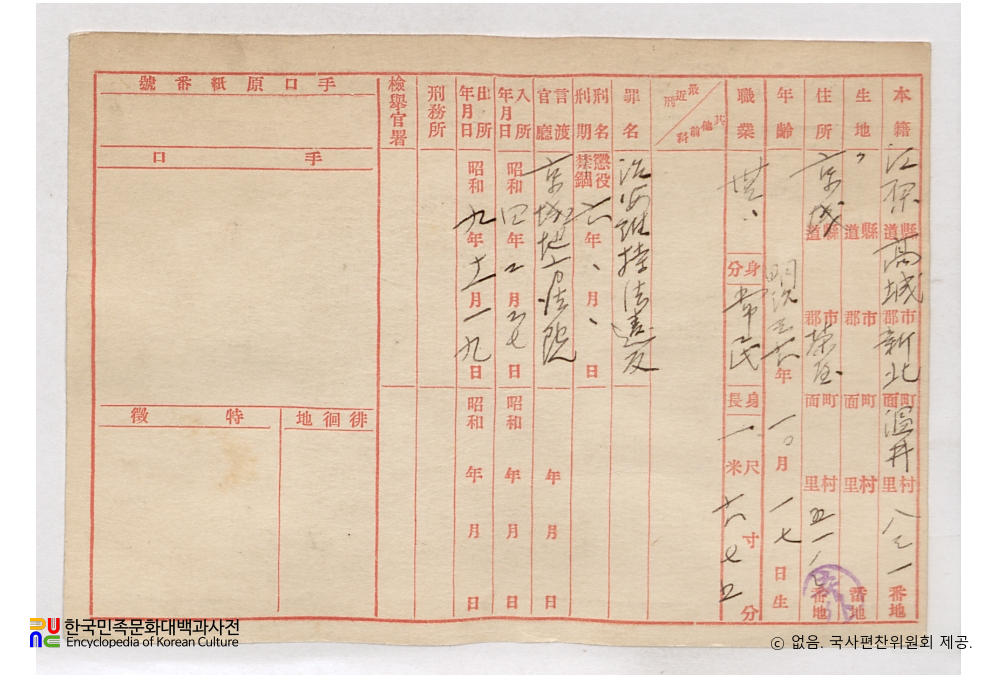 本籍 江原道縣 高城郡市 新北面町 溫井里村 八三一番地
生地 〃 道縣 郡市 面町 里村 番地
住所 京城道縣 郡市 面町 里村 五一 番地
年齡 明治三六年一〇月一七日生
職業 身分 常民 身長 一米尺六七寸五分
最近刑 其他前科
罪名 治安維持法違反
刑名 刑期 懲役 禁錮 六年、月、日
言渡官廳 京城地方法院 年 月 日
入所年月日 昭和四年二月二七日 昭和 年 月 日
出所年月日 昭和九年十一月一九日 昭和 年 月 日
刑務所
檢擧官署
手口原紙番號
手口
徘徊地
特徵
한국민족문화대백과사전
Encyclopedia of Korean Culture
© 없음. 국사편찬위원회 제공.